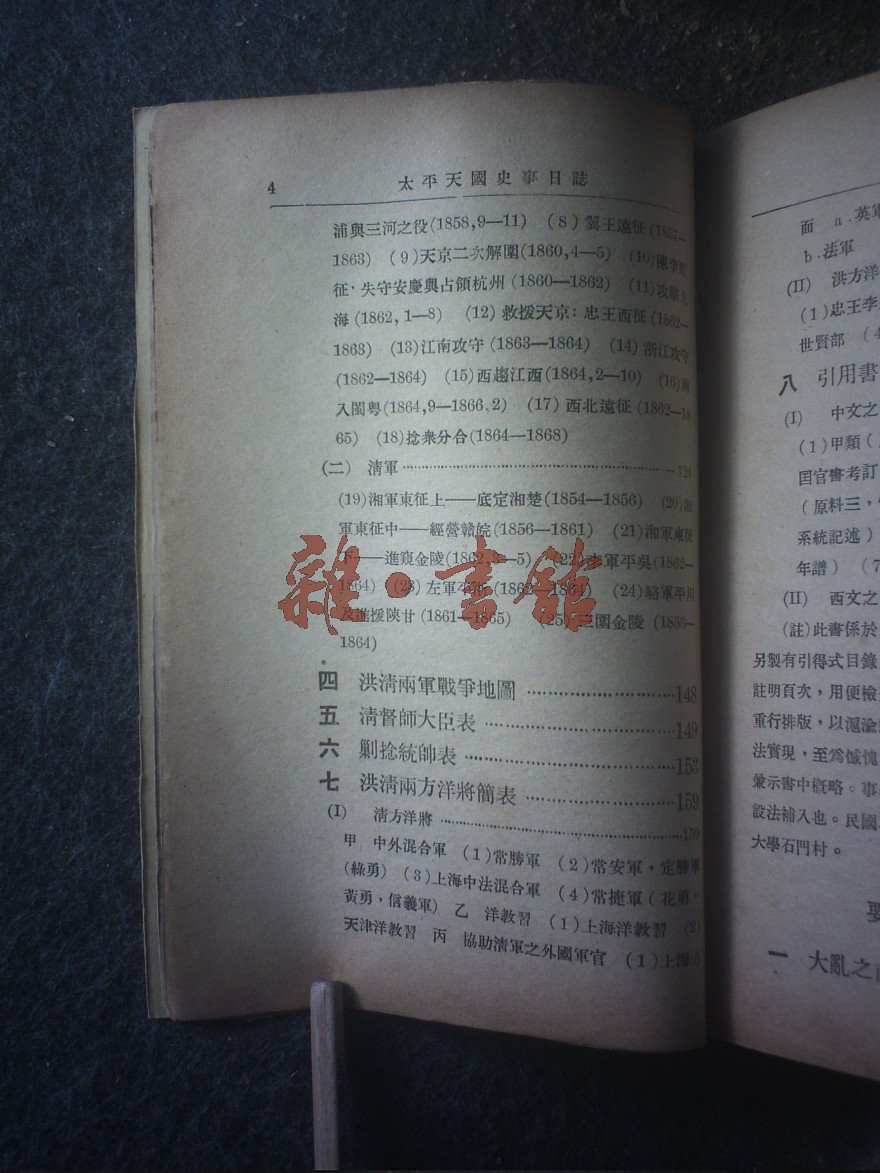 4 太平天國史事日誌
浦與三河之役(1858,9—11) (8) 翼王遠征(1857—
1863) (9)天京二次解圍(1860,4—5) (10)陳李
征·失守安慶與占領杭州 (1860—1862) (11)攻擊上
海(1862,1—8) (12) 救援天京：忠王西征(1862—
1863) (13)江南攻守 (1863—1864) (14) 浙江攻守
(1862—1864) (15)西趨江西(1864,2—10) (16)南
入閩粵(1864,9—1866,2) (17) 西北遠征 (1862—18
65) (18)捻衆分合(1864—1868)
(二) 清軍 124
(19)湘軍東征上——底定湘楚(1854—1856) (20)湘
軍東征中——經營贛皖(1856—1861) (21)湘軍東征
下——進窺金陵(1862,—5) (22)李軍平吳(1862—
1864) (23) 左軍平浙(1862—1864) (24)駱軍平川
及進援陝甘(1861—1865) (25)三圍金陵 (1853—
1864)
四 洪清兩軍戰爭地圖 148
五 清督師大臣表 149
六 剿捻統帥表 153
七 洪清兩方洋將簡表 159
(I) 清方洋將 159
甲 中外混合軍 (1)常勝軍 (2)常安軍，定勝軍
(綠勇) (3)上海中法混合軍 (4)常捷軍(花勇，
黃勇，信義軍) 乙 洋教習 (1)上海洋教習 (2)
天津洋教習 丙 協助清軍之外國軍官 (1)上海
雜·書館
面 a.英軍
b.法軍
(II) 洪方洋
(1)忠王李
世賢部 (4
八 引用書
(I) 中文之
(1)甲類(
国官書考訂
(原料三，
系統記述)
年譜) (7
(II) 西文之
(註)此書係於
另製有引得式目錄
註明頁次，用便檢
重行排版，以滬淪
法實現，至爲慽愧
兼示書中概略。事
設法補入也。民國
大學石門村。
要
一 大亂之